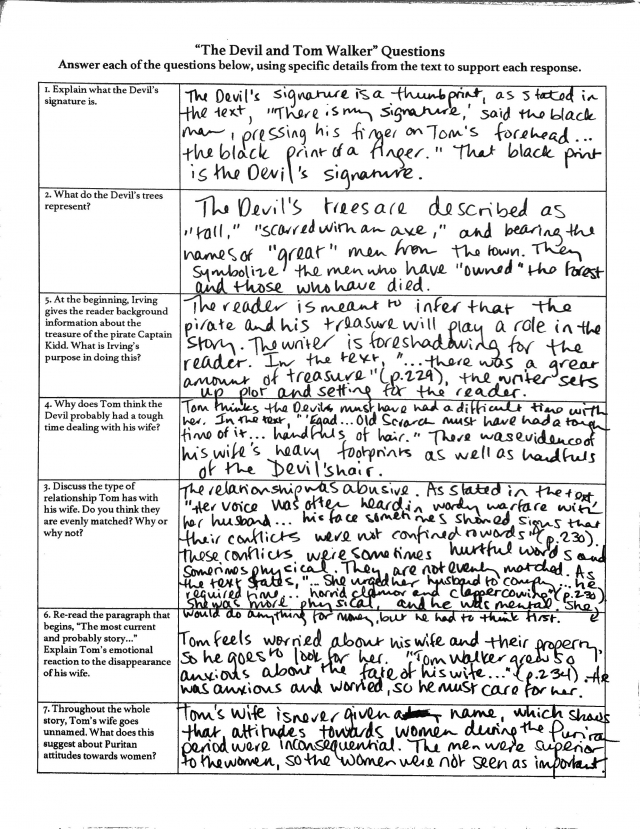 "The Devil and Tom Walker" Questions
Answer each of the questions below, using specific details from the text to support each response.
1. Explain what the Devil's
signature is.
The Devil's signature is a thumbprint, as stated in
the text, "'There is my signature,' said the black
man, pressing his finger on Tom's forehead...
the black print of a finger." That black print
is the Devil's signature.
2. What do the Devil's trees
represent?
The Devil's trees are described as
"tall," "scarred with an axe," and bearing the
names of "great" men from the town. They
symbolize the men who have "owned" the forest
and those who have died.
5. At the beginning, Irving
gives the reader background
information about the
treasure of the pirate Captain
Kidd. What is Irving's
purpose in doing this?
The reader is meant to infer that the
pirate and his treasure will play a role in the
story. The writer is foreshadowing for the
reader. In the text, "...there was a great
amount of treasure" (p.229), the writer sets
up plot and setting for the reader.
4. Why does Tom think the
Devil probably had a tough
time dealing with his wife?
Tom thinks the Devil must have had a difficult time with
her. In the text, "'Egad...Old Scratch must have had a tough
time of it... handfuls of hair." There was evidence of
his wife's heavy footprints as well as handfuls
of the Devil's hair.
3. Discuss the type of
relationship Tom has with
his wife. Do you think they
are evenly matched? Why or
why not?
The relationship was abusive. As stated in the text,
"Her voice was often heard in wordy warfare with
her husband... his face sometimes showed signs that
their conflicts were not confined to words" (p.230).
These conflicts were sometimes hurtful words and
sometimes physical. They are not evenly matched. As
the text states, "...She urged her husband to comply...he
required time... horrid clamor and clapperclawing" (p.230)
She was more physical, and he was mental. She
would do anything for money, but he had to think first.
6. Re-read the paragraph that
begins, "The most current
and probably story..."
Explain Tom's emotional
reaction to the disappearance
of his wife.
Tom feels worried about his wife and their property,
so he goes to look for her. "Tom Walker grew so
anxious about the fate of his wife..." (p.234). He
was anxious and worried, so he must care for her.
7. Throughout the whole
story, Tom's wife goes
unnamed. What does this
suggest about Puritan
attitudes towards women?
Tom's wife is never given a name, which shows
that attitudes towards women during the Puritan
period were inconsequential. The men were superior
to the women, so the women were not seen as important.